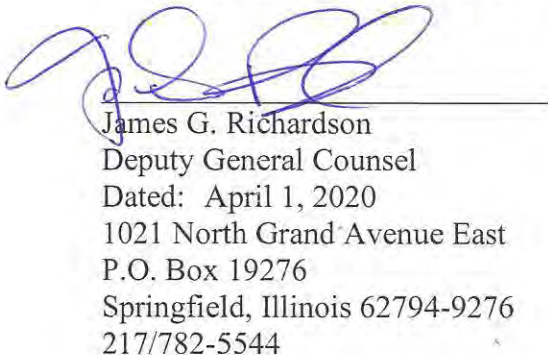 James G. Richardson
Deputy General Counsel
Dated: April 1, 2020
1021 North Grand Avenue East
P.O. Box 19276
Springfield, Illinois 62794-9276
217/782-5544